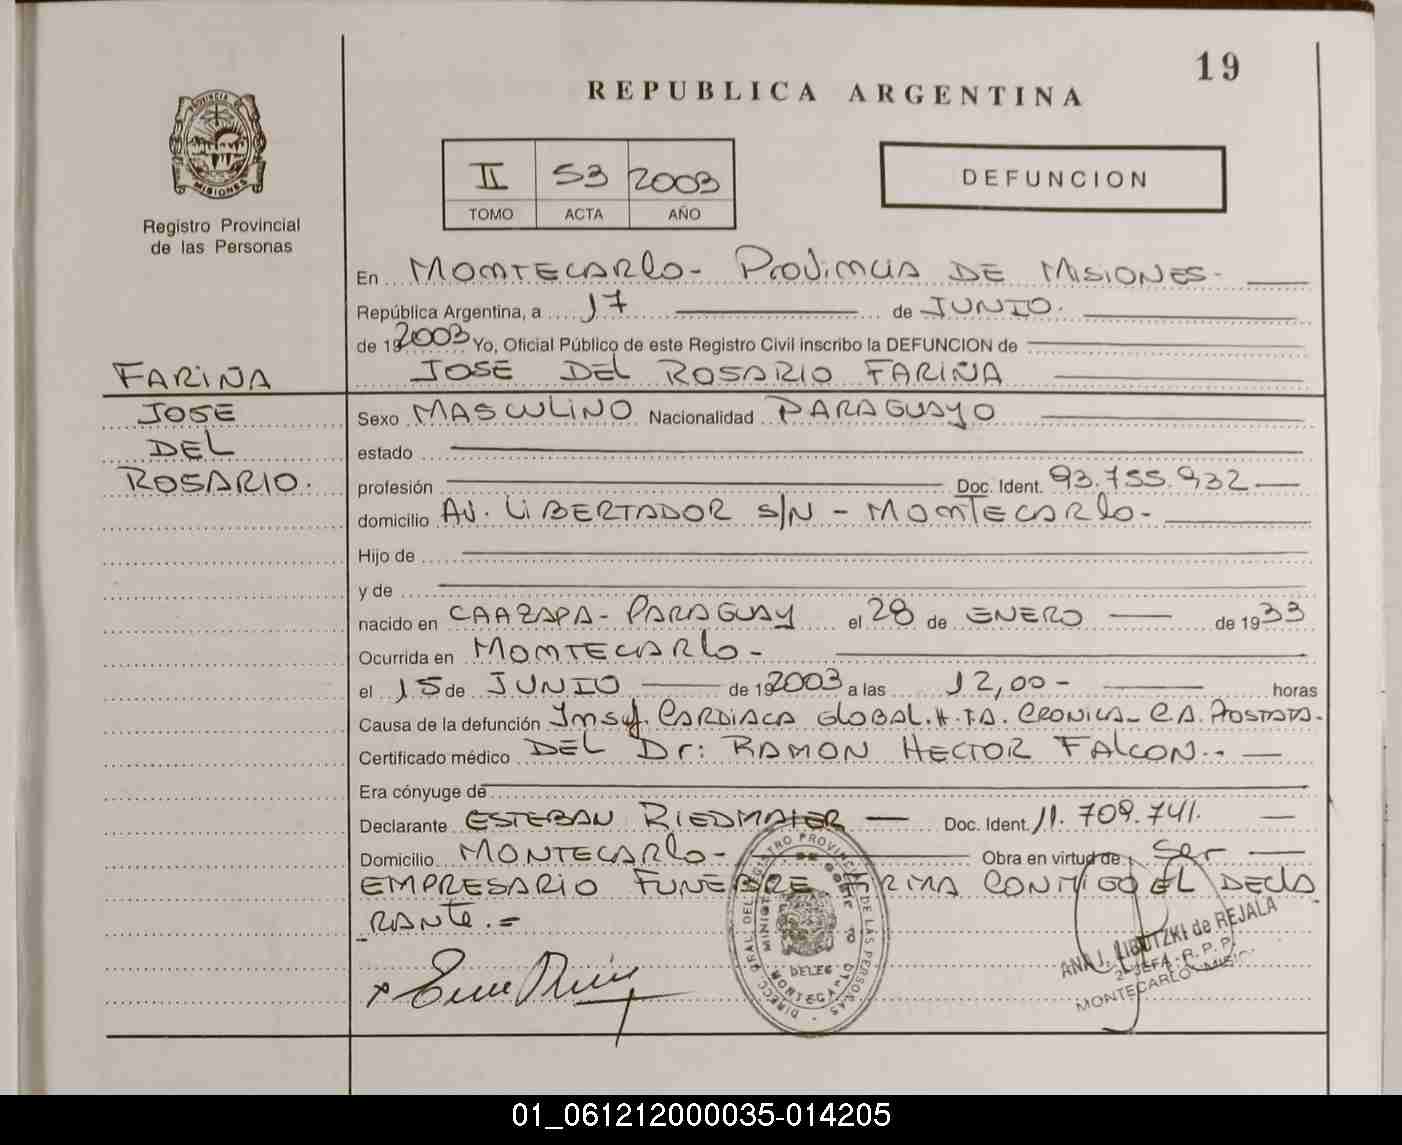 19
REPUBLICA ARGENTINA
PROVINCIA
MISIONES
Registro Provincial
de las Personas
II 53 2003
TOMO ACTA AÑO
DEFUNCION
En MONTECARLO- PROVINCIA DE MISIONES-
República Argentina, a 17 de JUNIO.
de 19 2003 Yo, Oficial Público de este Registro Civil inscribo la DEFUNCION de
JOSE DEL ROSARIO FARIÑA
FARIÑA
JOSE
DEL
ROSARIO.
Sexo MASCULINO Nacionalidad PARAGUAYO
estado
profesión Doc. Ident. 93.755.932
domicilio AV. LIBERTADOR S/N - MONTECARLO-
Hijo de
y de
nacido en CAAZAPA- PARAGUAY el 28 de ENERO de 1933
Ocurrida en MONTECARLO-
el 15 de JUNIO de 19 2003 a las 12,00- horas
Causa de la defunción Insuf. CARDIACA GLOBAL. H.T.A. CRONICA- C.A. PROSTATA.
Certificado médico DEL Dr: RAMON HECTOR FALCON.-
Era cónyuge de
Declarante ESTEBAN RIEDMAIER Doc. Ident. 11.709.741.
Domicilio MONTECARLO- Obra en virtud de Ser
EMPRESARIO FUNEBRE FIRMA CONMIGO EL DECLA
RANTE.=
DIRECC. GRAL. DEL REGISTRO PROVINCIAL DE LAS PERSONAS
DELEG
ANA I. LIBUTZKI de REJALA
2º JEFA - R. P. P.
MONTECARLO - MISIO
01_061212000035-014205